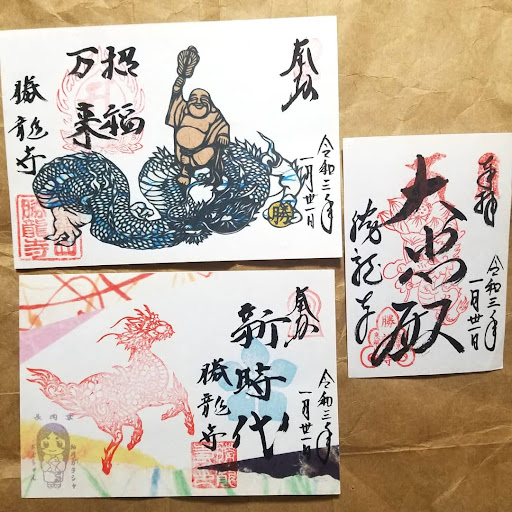 奉拝
招福
万来
勝龍寺
令和三年
一月廿一日
勝
勝龍寺
奉拝
新時代
勝龍寺
令和三年
一月廿一日
長岡京
細川ガラシャ
奉拝
大悲殿
勝龍寺
令和三年
一月廿一日